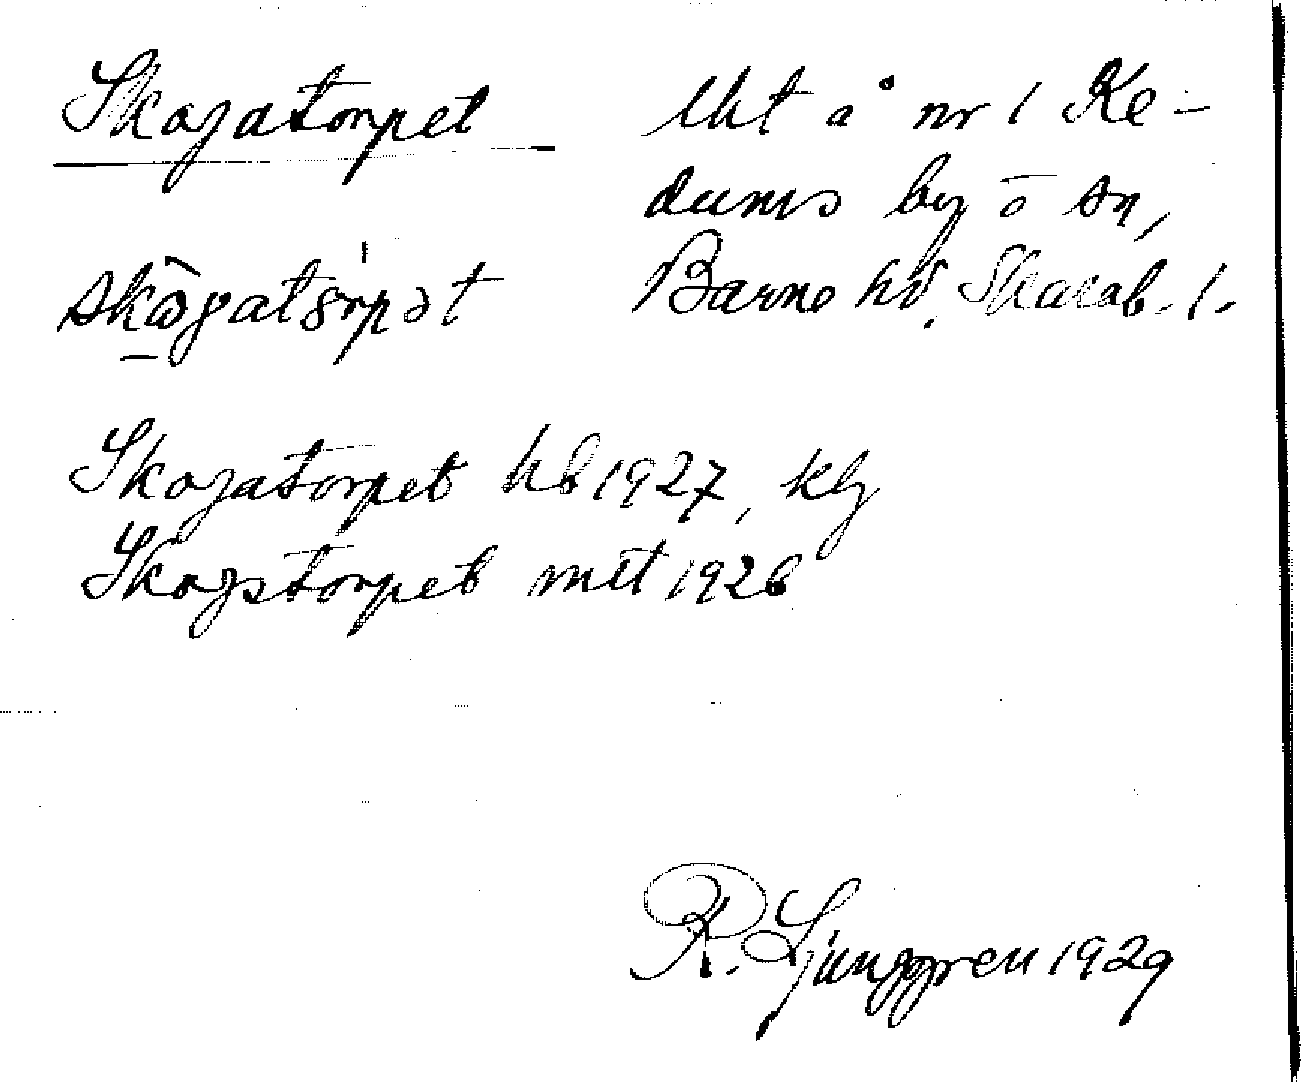 Skogatorpet
lht å nr 1 Ke-
dums by o sn,
Barne hd. Skarab. l.
Skogatorpet hb 1927, kly
Skogstorpet mtl 1926
R. Ljunggren 1929